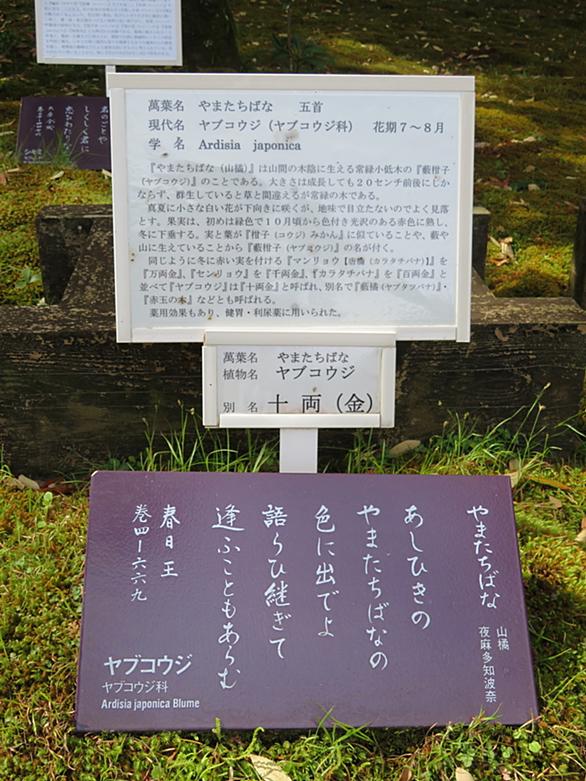 萬葉名 やまたちばな 五首
現代名 ヤブコウジ（ヤブコウジ科） 花期７～８月
学 名 Ardisia japonica
『やまたちばな（山橘）』は山間の木陰に生える常緑小低木の『藪柑子
（ヤブコウジ）』のことである。大きさは成長しても２０センチ前後にしか
ならず、群生していると草と間違えるが常緑の木である。
真夏に小さな白い花が下向きに咲くが、地味で目立たないのでよく見落
とす。果実は、初めは緑色で１０月頃から色付き光沢のある赤色に熟し、
冬に下垂する。実と葉が『柑子（コウジ）みかん』に似ていることや、藪や
山に生えていることから『藪柑子（ヤブコウジ）』の名が付く。
同じように冬に赤い実を付ける『マンリョウ【唐橘（カラタチバナ）】』を
『万両金』、『センリョウ』を『千両金』、『カラタチバナ』を『百両金』と
並べて『ヤブコウジ』は『十両金』と呼ばれ、別名で『藪橘（ヤブタツバナ）』・
『赤玉の木』などとも呼ばれる。
薬用効果もあり、健胃・利尿薬に用いられた。
萬葉名 やまたちばな
植物名 ヤブコウジ
別 名 十 両（金）
やまたちばな
山橘
夜麻多知波奈
あしひきの
やまたちばなの
色に出でよ
語らひ継ぎて
逢ふこともあらむ
春日王
巻四ー六六九
ヤブコウジ
ヤブコウジ科
Ardisia japonica Blume